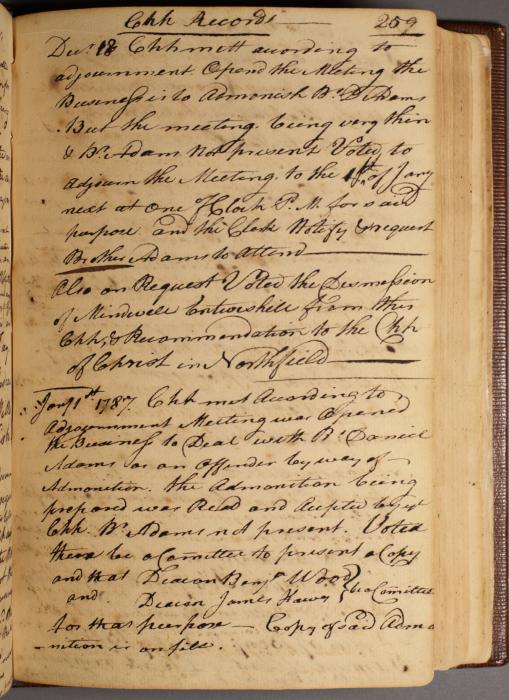 Chh Records 259
Decr. 18 Chh mett acording to
adjournment. Opend the Meeting the
Business is to Admonish Br. D. Adams
But the meeting being very thin
& Br. Adams not present Voted to
Adjourn the Meeting to the 1st of Jany
next at One O Clock P. M. for said
purpose and the Clerk Notify & request
Brother Adams to Attend
Also on Request Voted the Dismession
of Mindwell Entwishell from this
Chh, & Recommendation to the Chh
of Christ in Northfield
Jany 1st 1787. Chh met According to
Adjournment Meeting was Opened
the Bussiness to Deal with Br. Daniel
Adams as an Offender by way of
Admonition. the Admonition being
prepared was Read and Acepted by ye
Chh. Br. Adams not present. Voted
there be a Comittee to present a Copy
and that Deacon Benja Wood
and Deacon James Hawes be a Comittee
for that purpose — Copy of said Admo
-nition is on file.